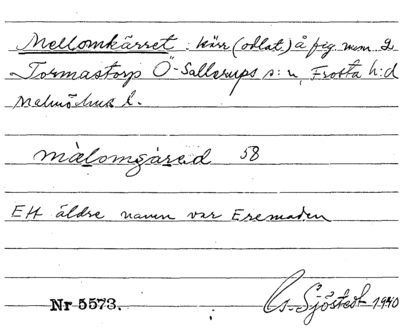 Mellomkärret : kärr (odlat) å fig. num 2
Tormastorp Ö-Sallerups s:n, Frosta h:d
Malmöhus l.
58
Ett äldre namn var Eremaden
Nr 5573.
G. Sjöstedt 1940